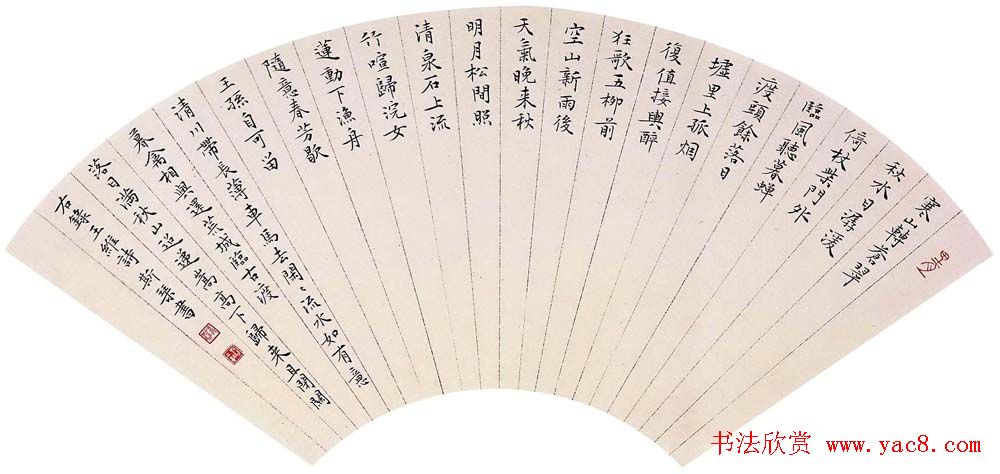 寒山轉蒼翠
秋水日潺湲
倚杖柴門外
臨風聽暮蟬
渡頭餘落日
墟里上孤烟
復值接輿醉
狂歌五柳前
空山新雨後
天氣晚来秋
明月松間照
清泉石上流
竹喧歸浣女
蓮動下漁舟
隨意春芳歇
王孫自可畄
清川帶長薄車馬去閑〻流水如有意
暮禽相與還荒城臨古渡
落日滿秋山迢遞嵩高下歸来且閉關
右錄王維詩斯琴書
书法欣赏 www.yac8.com